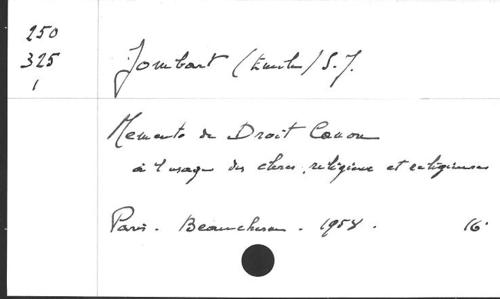 250
325
1
Jombart (Emile) S. J.
Memento de Droit Canon
à l'usage des clercs, religieux et religieuses
Paris. Beauchesne. 1958. 16°